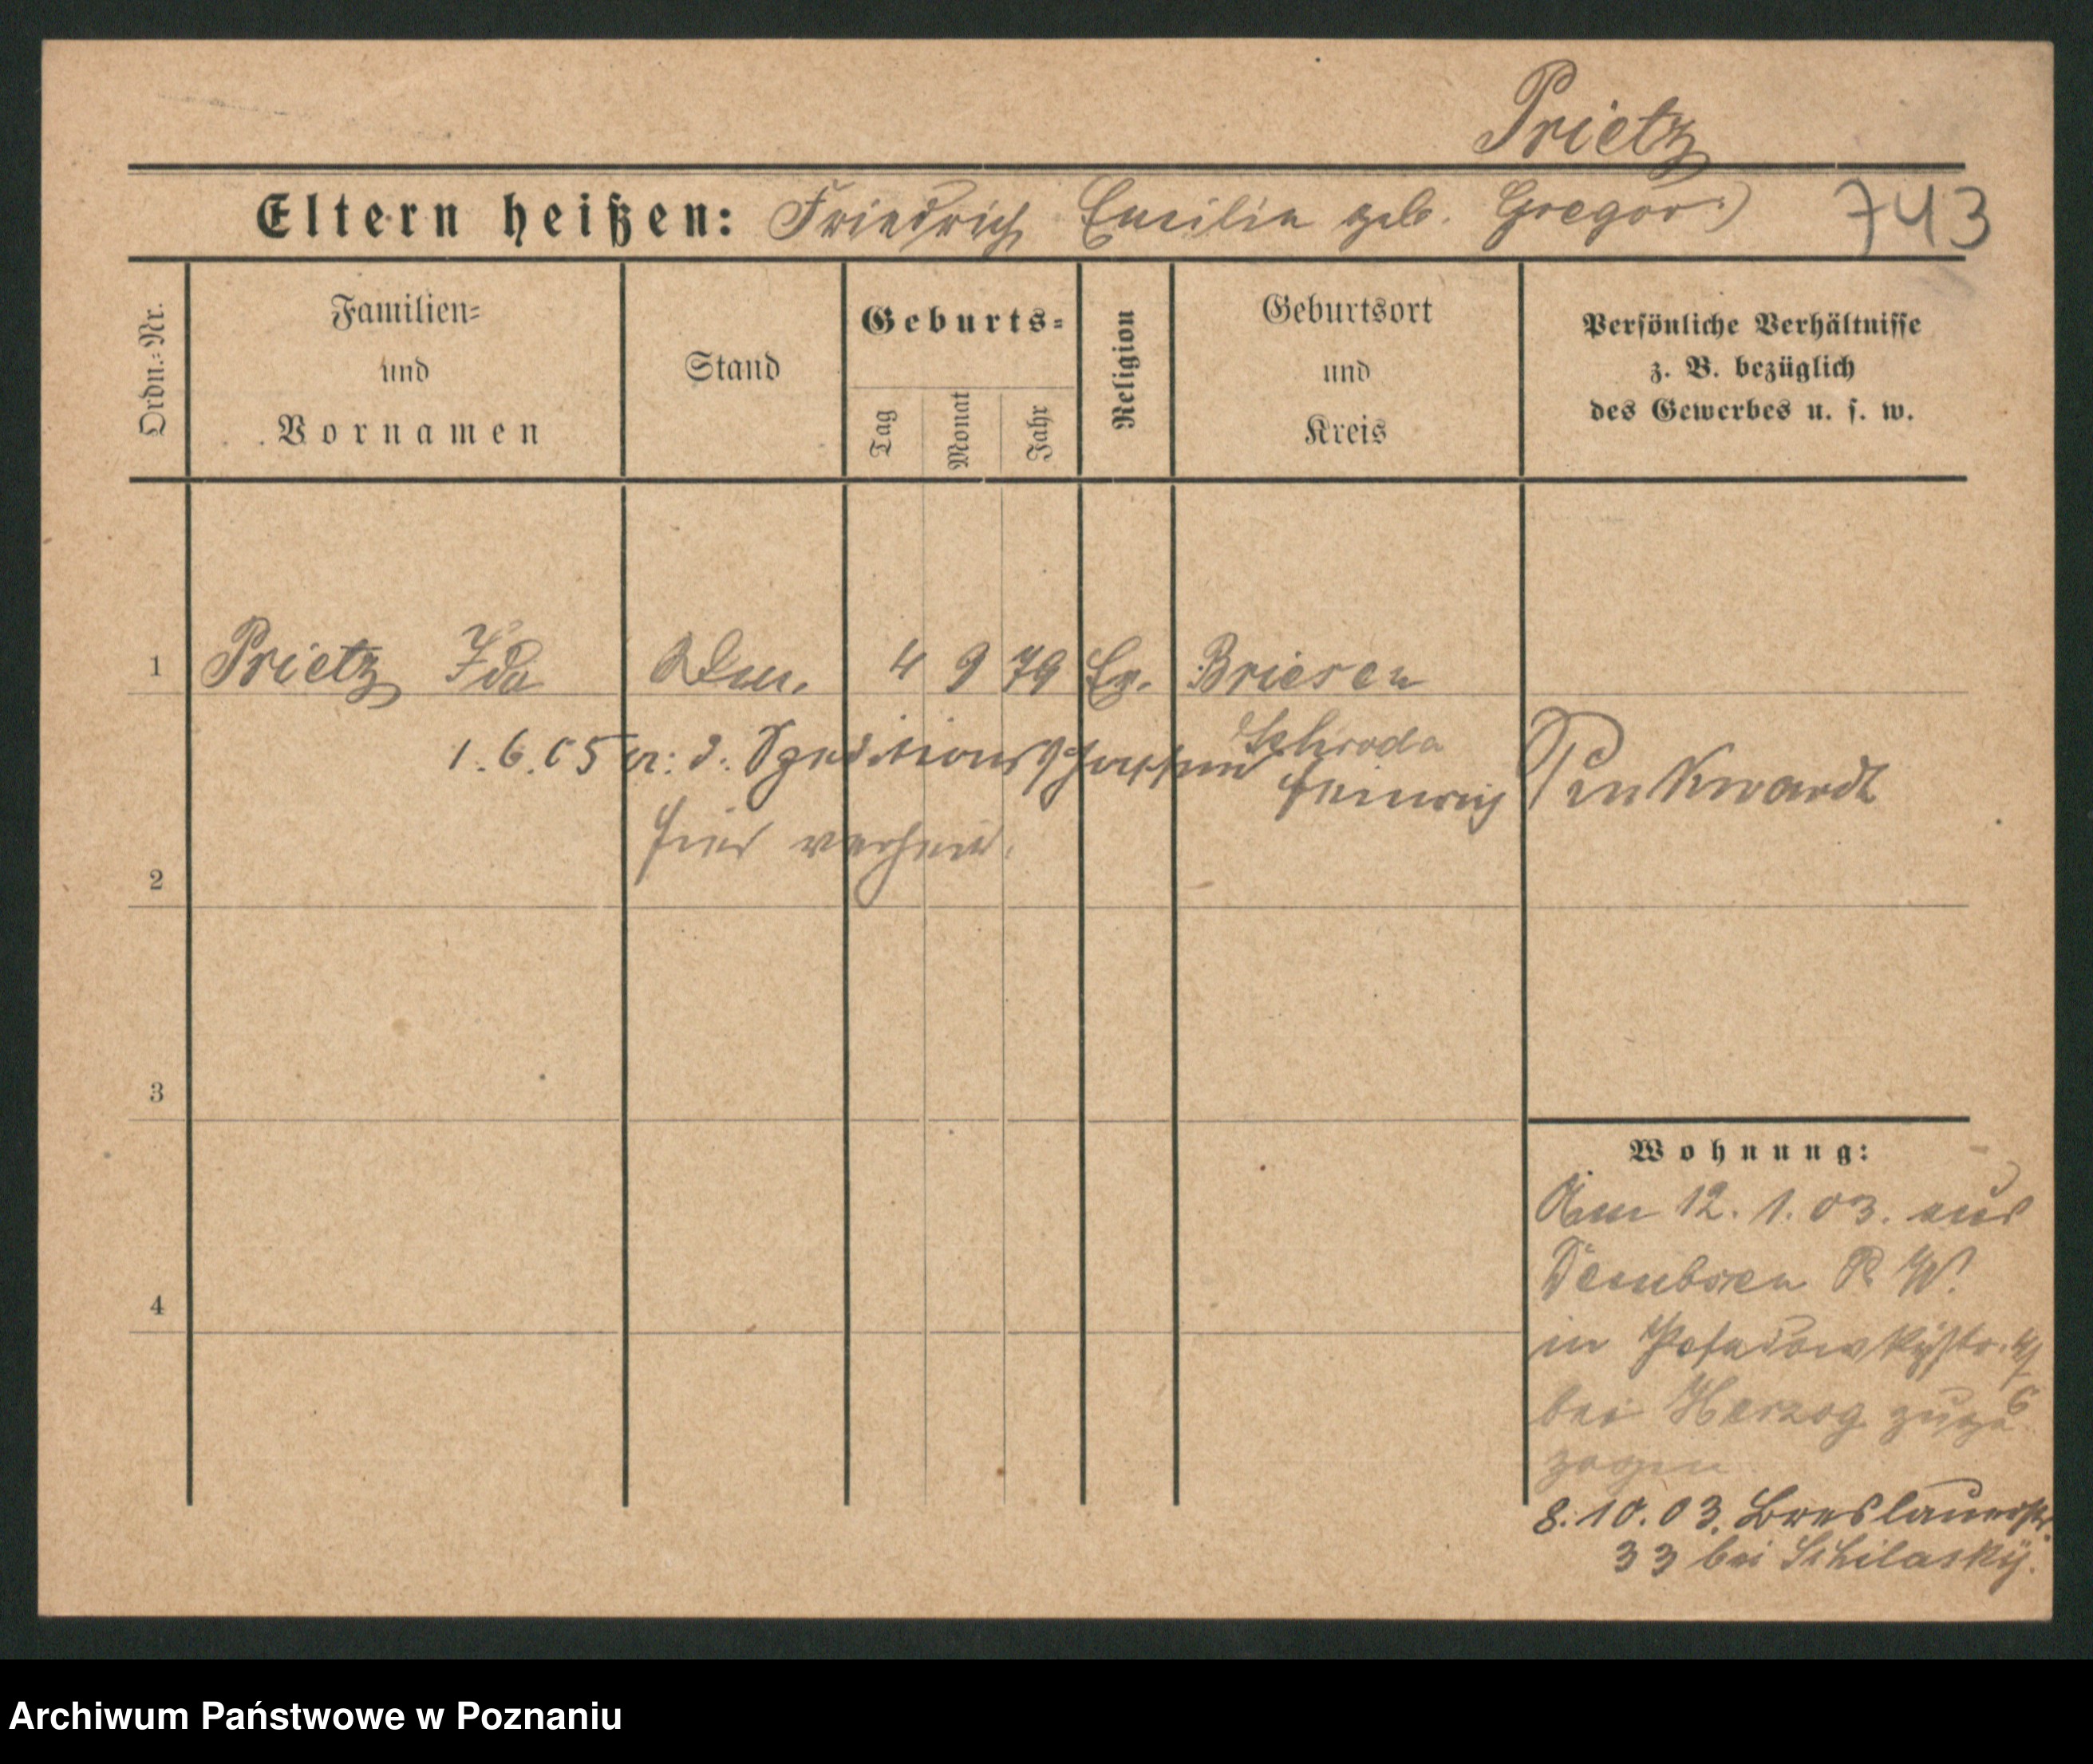 Prietz
Eltern heißen: Friedrich Emilie geb. Gregor :) 743
Ordn.=Nr.
Familien=
und
Vornamen
Stand
Geburts=
Tag
Monat
Jahr
Religion
Geburtsort
und
Kreis
Persönliche Verhältnisse
z. B. bezüglich
des Gewerbes u. s. w.
1 Prietz Ida 4 9 79 Ev. Briesen
Schroda
1.6.05 m: d. Heinrich Penkwardt
hier verheir.
2
3
4
Wohnung:
Am 12. 1. 03. aus
Dembsen P. W.
in Posadowskystr. 4/
6
bei Herzog zuge
zogen
8.10.03. Breslauerstr.
33 bei Schilasky.
Archiwum Państwowe w Poznaniu